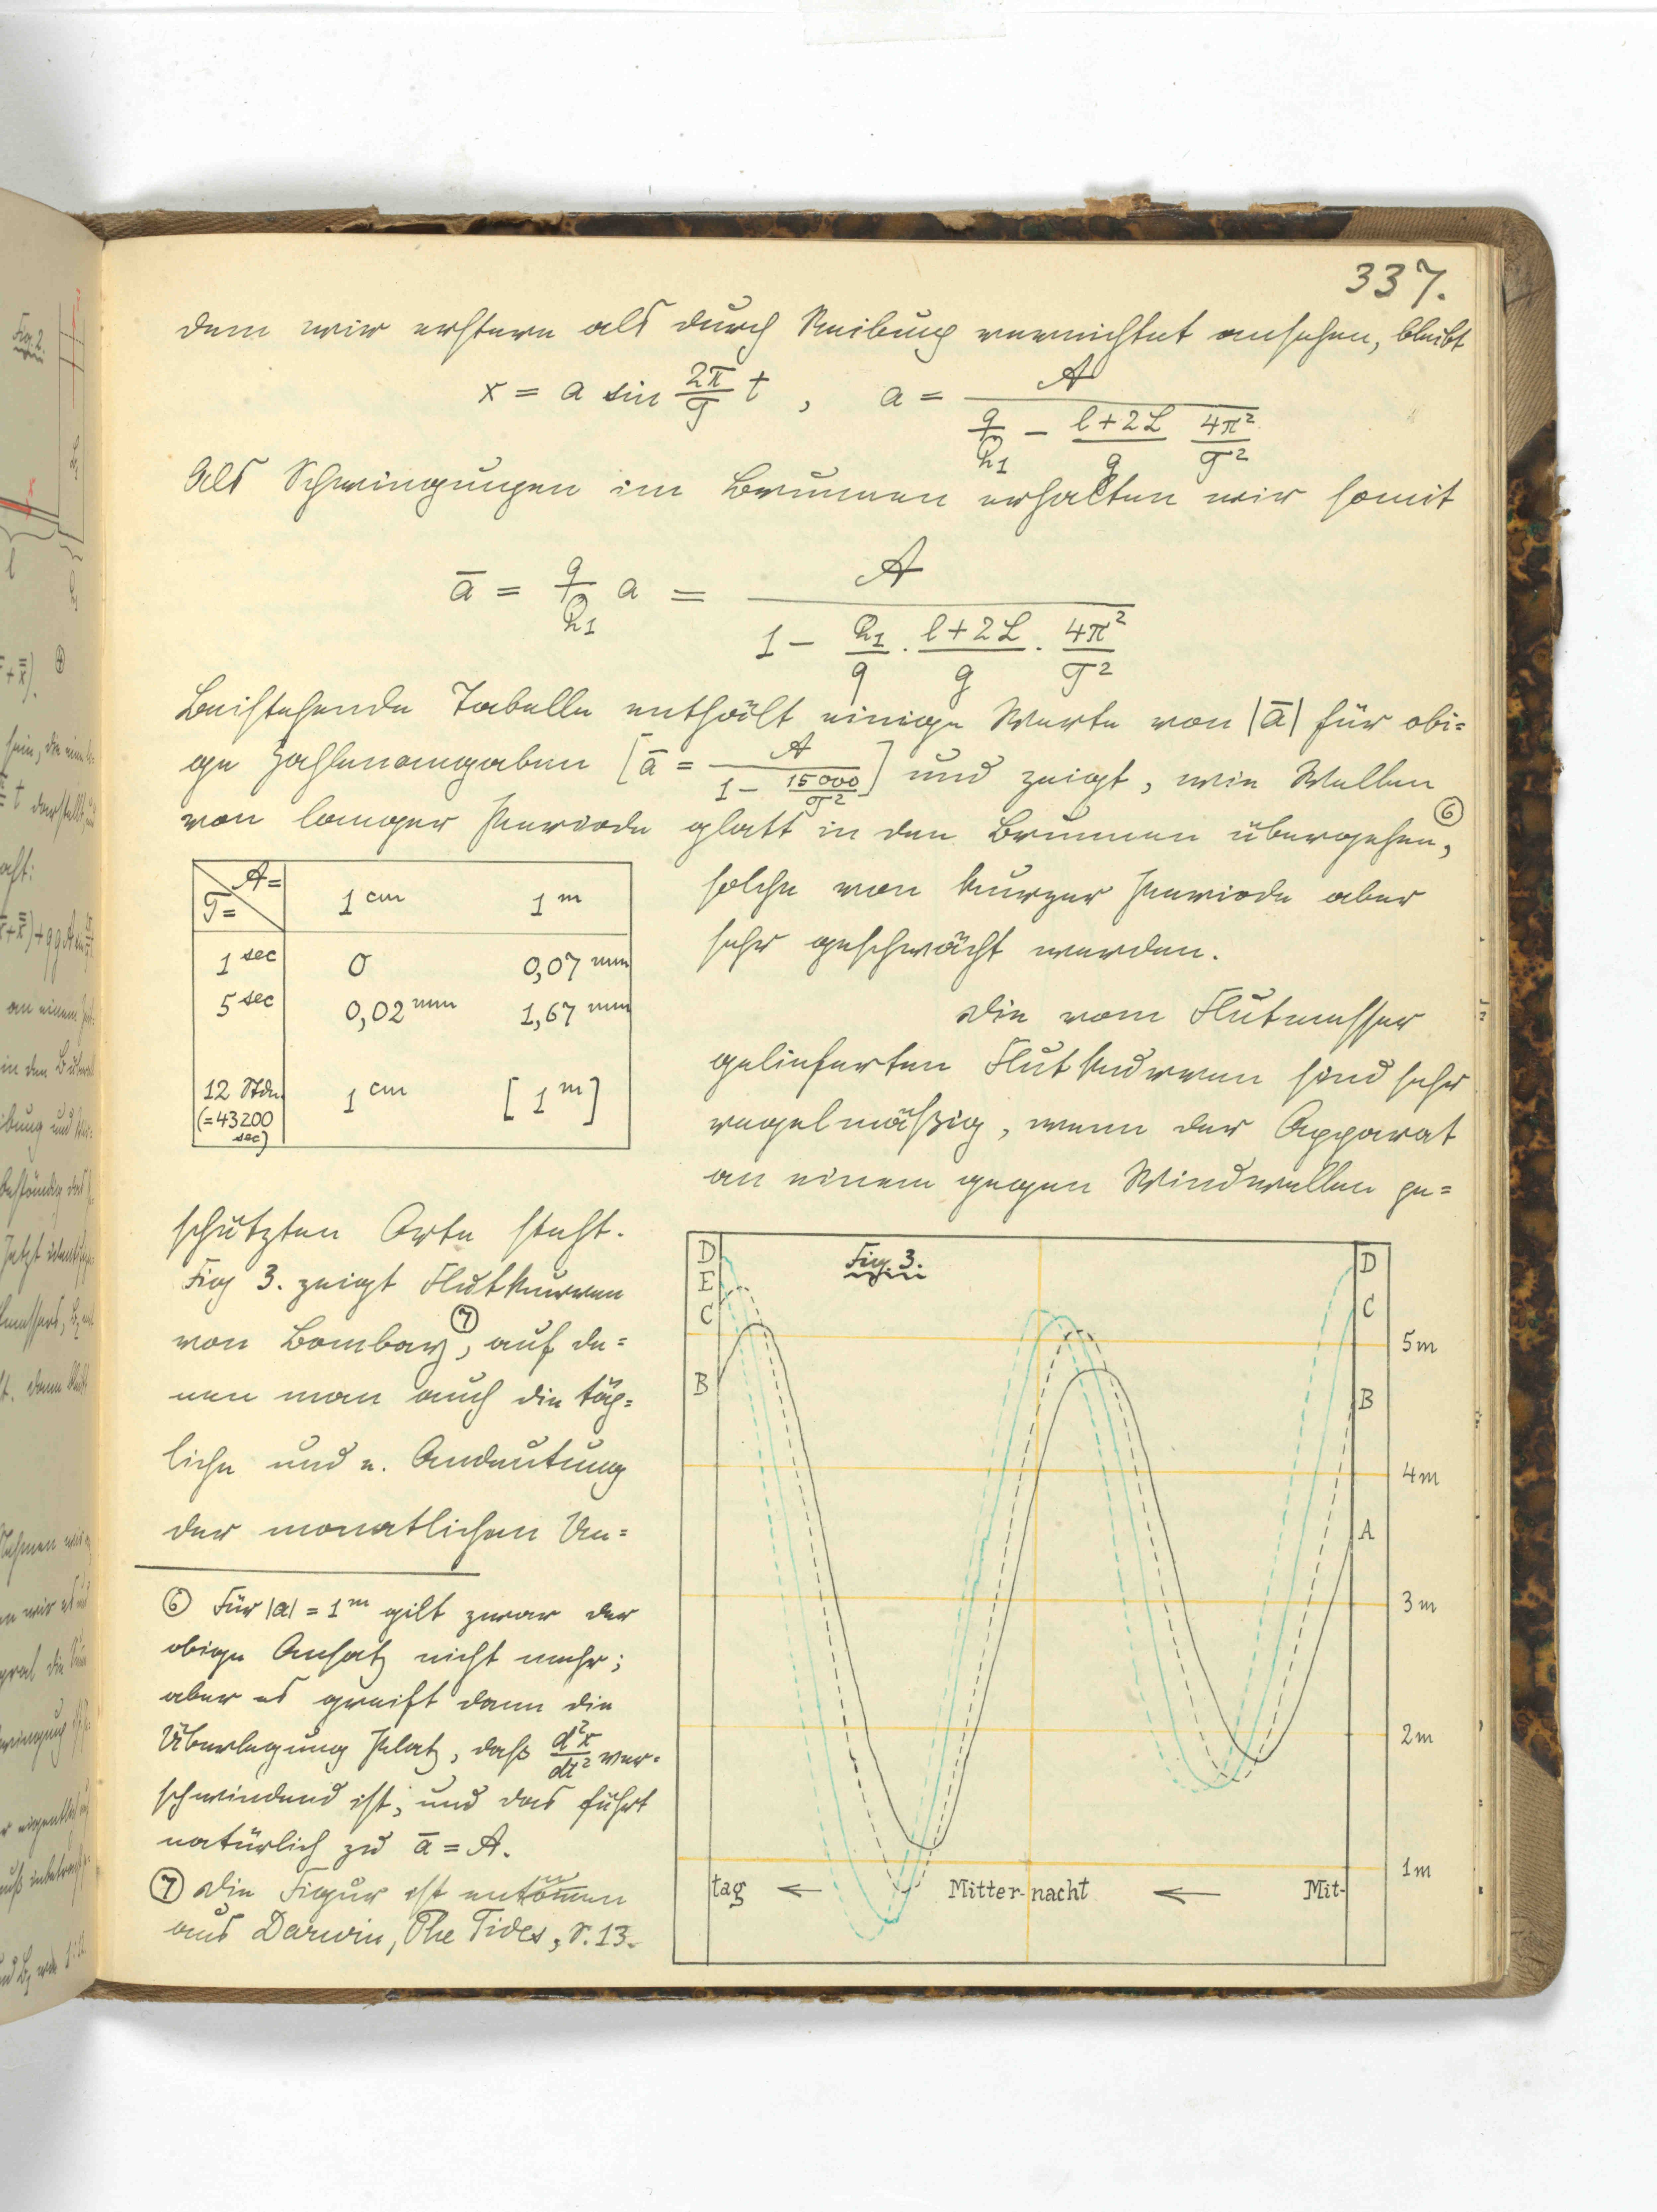 337.
dem wir erstere als durch Reibung vernichtet ansehen, bleibt
x = a sin 2π/T t , a = A / (q/Q₁ − (l+2L)/g · 4π²/T²)
Als Schwingungen im Brunnen erhalten wir somit
ā = q/Q₁ a = A / (1 − Q₁/q · (l+2L)/g · 4π²/T²)
Beistehende Tabelle enthält einige Werte von |ā| für obi=
ge Zahlenangaben [ā = A / (1 − 15000/T²)] und zeigt, wie Wellen
von langer Periode glatt in den Brunnen übergehen⑥,
solche von kurzer Periode aber
sehr geschwächt werden.
A= T= 1 cm 1 m
1 sec 0 0,07 mm
5 sec 0,02 mm 1,67 mm
12 Stdn. (=43200 sec) 1 cm [1 m]
Die vom Flutmesser
gelieferten Flutkurven sind sehr
regelmäßig, wenn der Apparat
an einem gegen Windwellen ge=
schützten Orte steht.
Fig 3. zeigt Flutkurven
von Bombay⑦, auf de=
nen man auch die täg=
liche und e. Andeutung
der monatlichen Un=
⑥ Für |a| = 1 m gilt zwar der
obige Ansatz nicht mehr;
aber es greift dann die
Überlegung Platz, daß d²x/dt² ver=
schwindend ist; und das führt
natürlich zu ā = A.
⑦ Die Figur ist entnom̅en
aus Darwin, The Tides, S. 13.
Fig. 3.
D
E
C
B
D
C
B
A
5m
4m
3m
2m
1m
tag ← Mitter-nacht ← Mit-
Fig. 2.